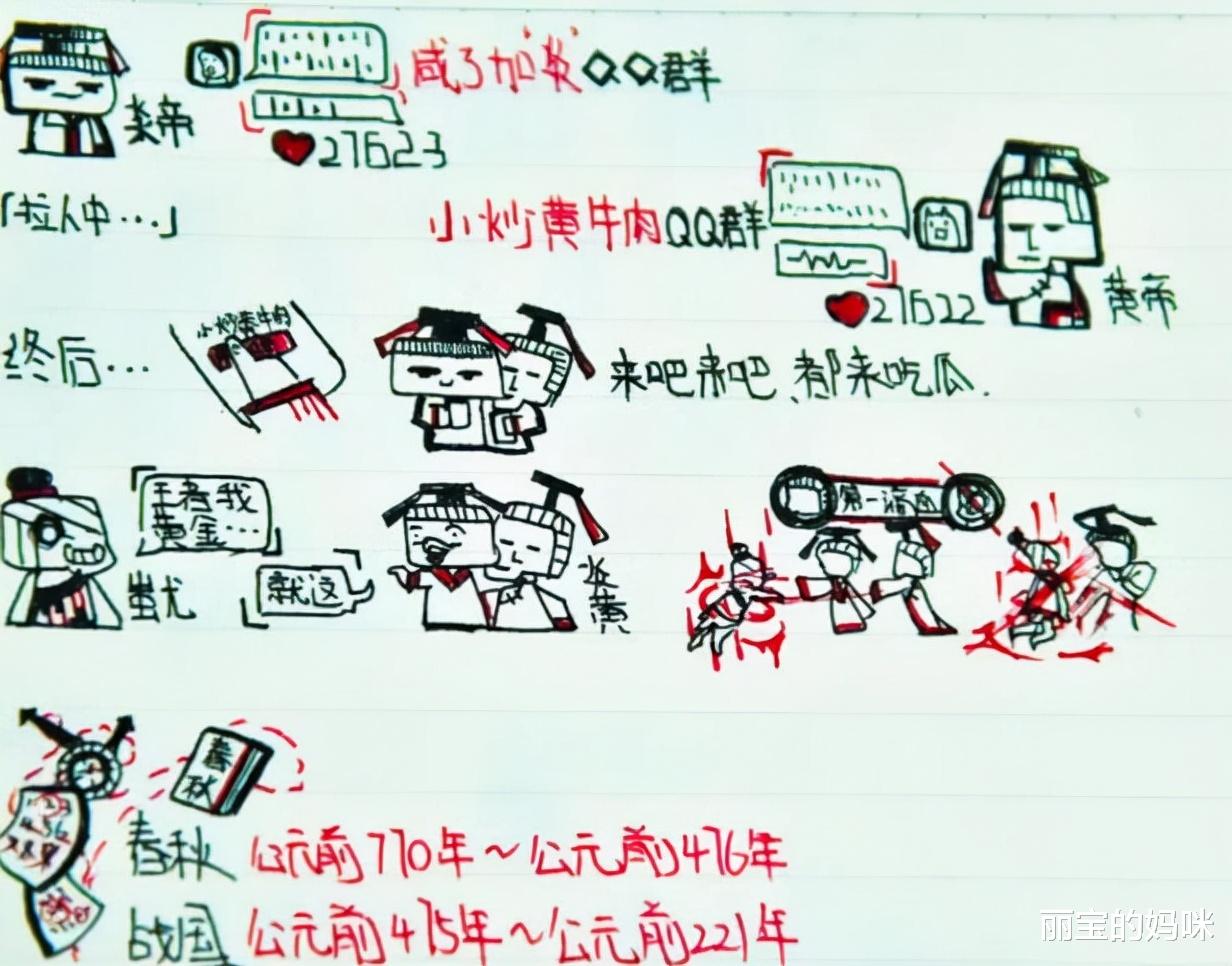 炎帝
咸了加'炎'QQ群
27623
「拉人中…」
小炒黄牛肉QQ群
27622
黄帝
终后…
小炒黄牛肉
来吧来吧、都来吃瓜.
王者我
黄金…
蚩尤
就这
炎黄
第一滴血
春秋
春秋 公元前770年~公元前476年
战国 公元前475年~公元前221年
丽宝的妈咪